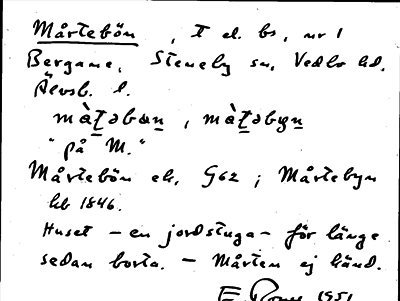 Mårtebön, T el. bs, nr 1
Bergane, Steneby sn, Vedbo hd.
Älvsb. l.
màṯəbøn, màṯəbyn
"på M."
Mårtebön ek, G62; Mårtebyn
hb 1846.
Huset – en jordstuga – för länge
sedan borta. – Mårten ej känd.
E. 1951